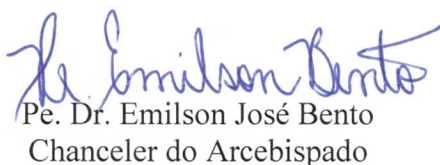 Pe. Emilson Bento
Pe. Dr. Emilson José Bento
Chanceler do Arcebispado